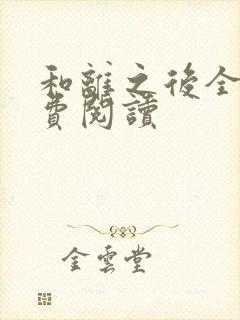 和離之後全
費閱讀
金雲堂